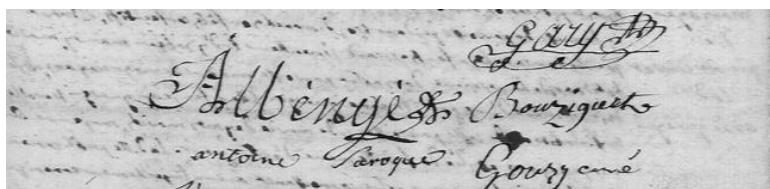 Gary
Albengé Bouziguet
antoine Laroque Gouzy curé